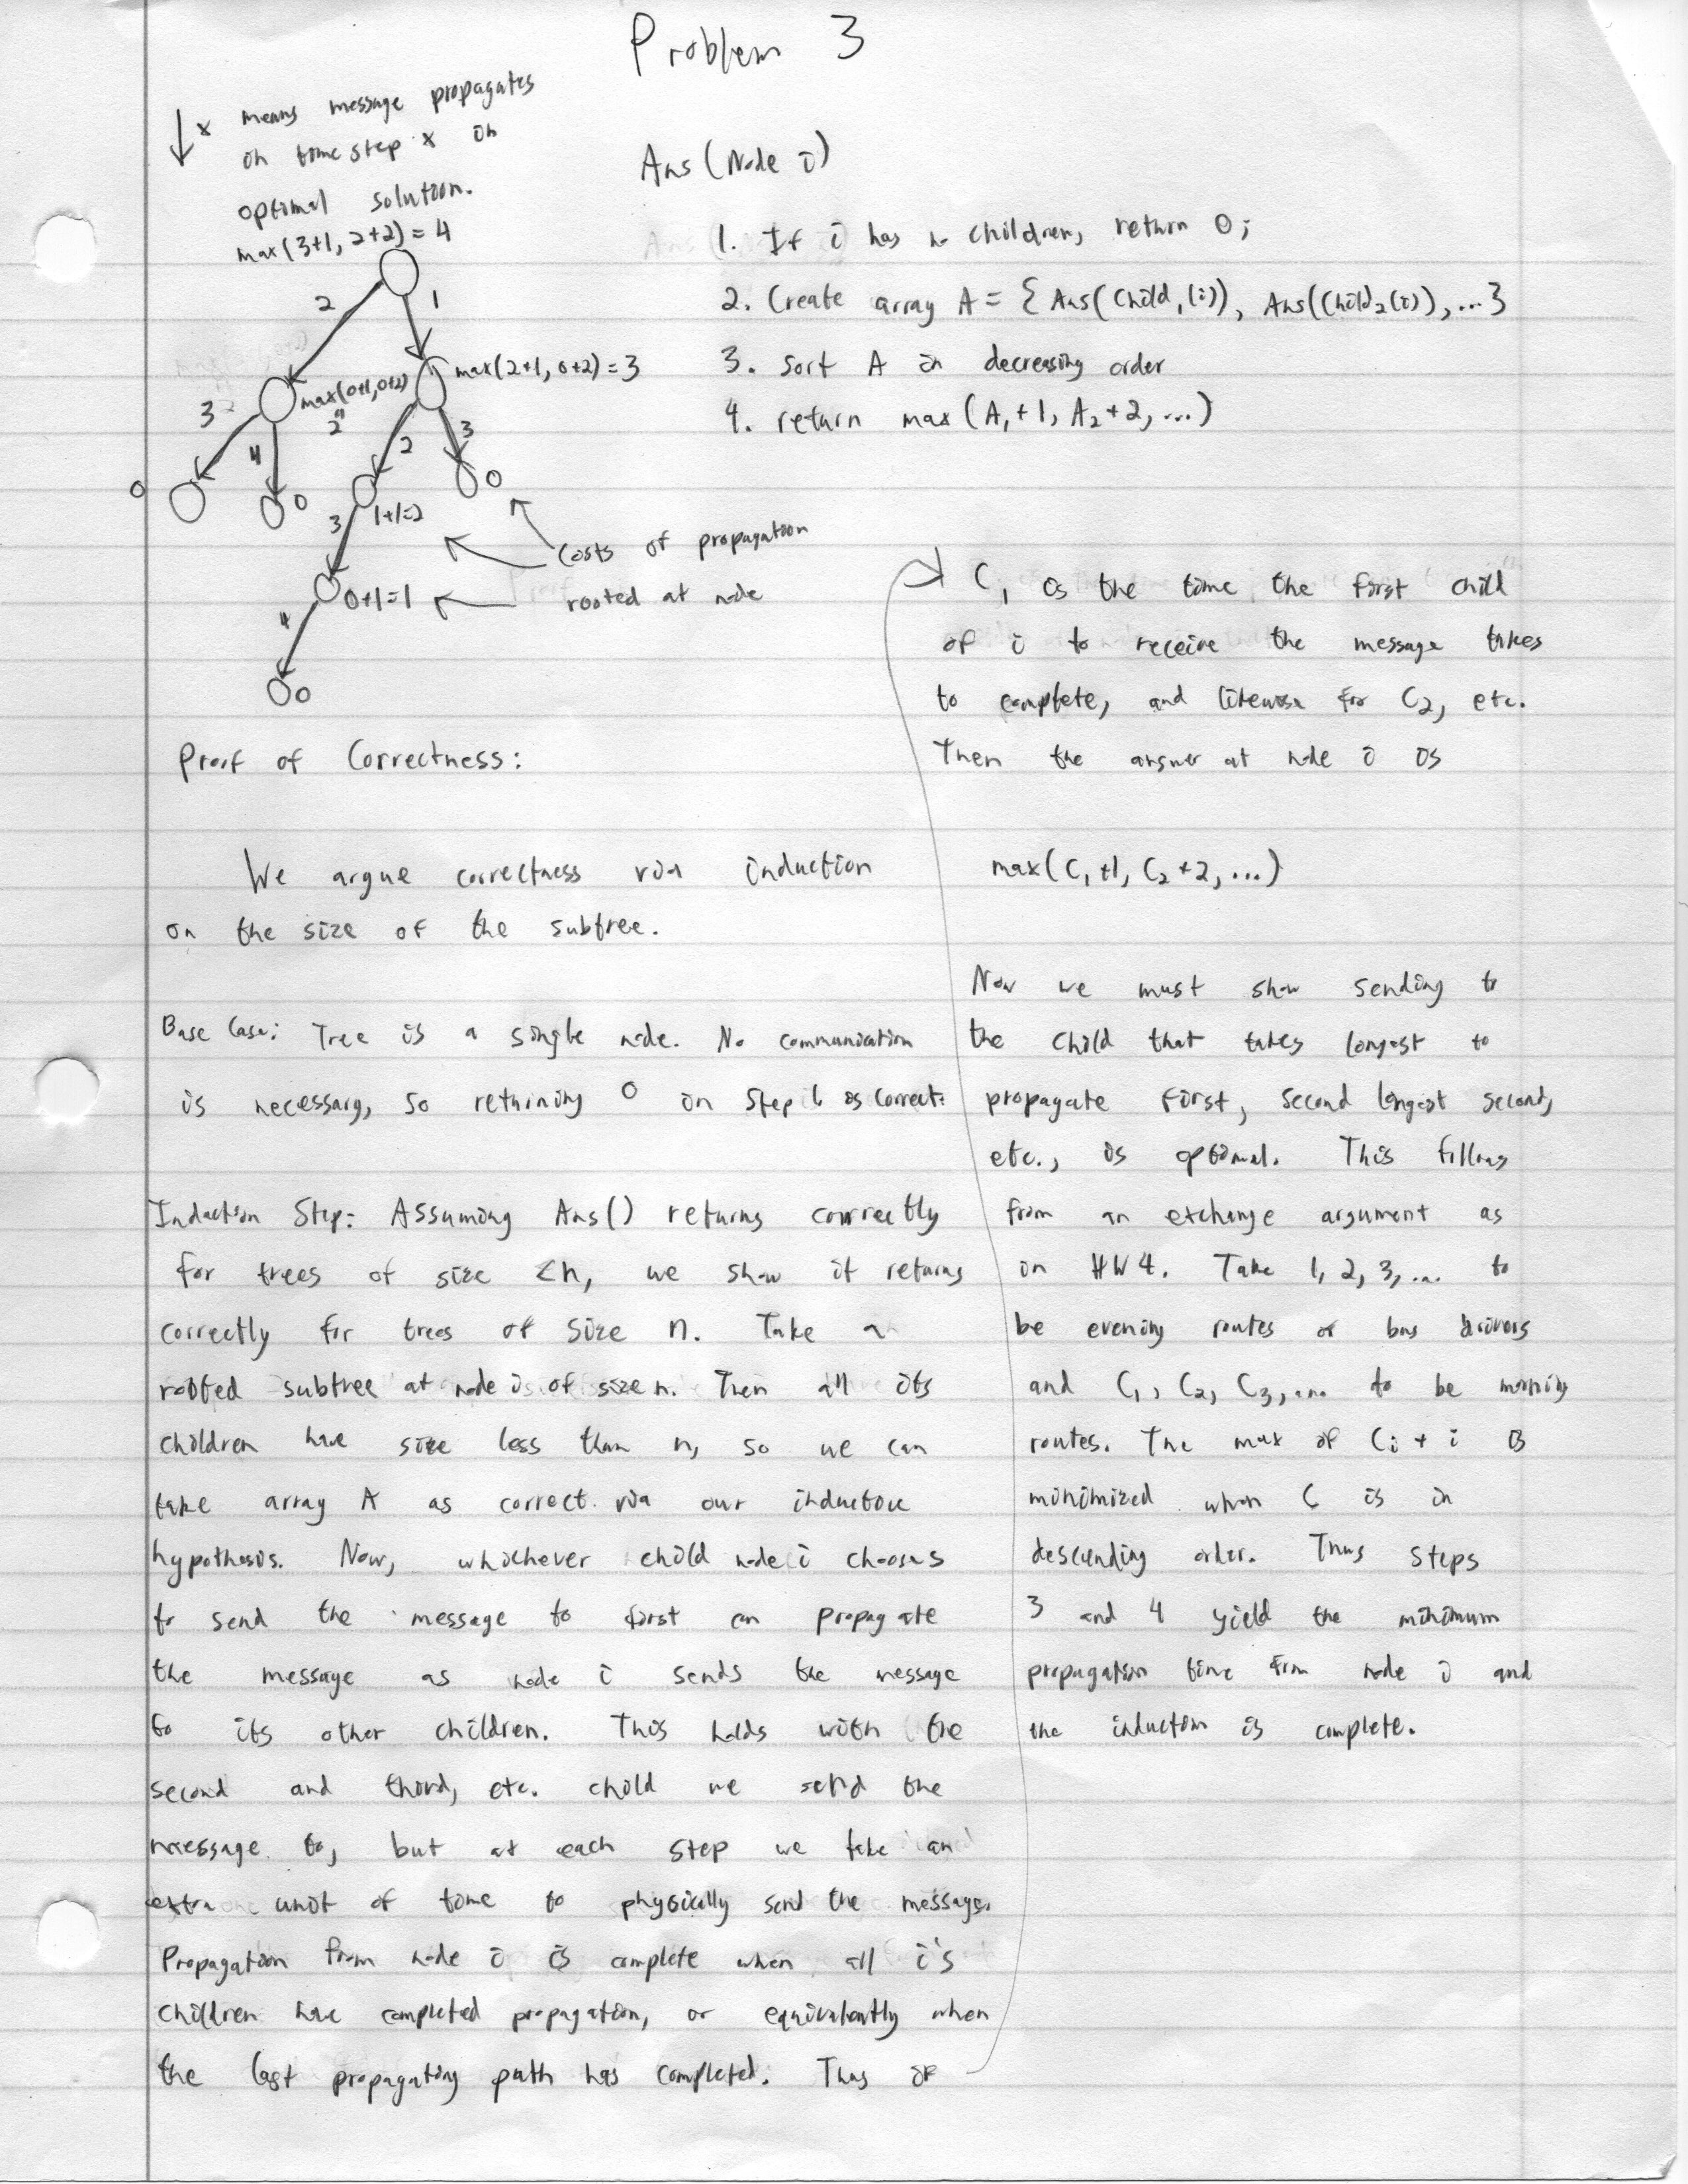 Problem 3
↓x means message propagates
on time step x on
optimal solution.
max(3+1, 2+2) = 4
2
1
max(0+1,0+2)
"
2
max(2+1, 0+2) = 3
3
4
2
3
0
0
0
3
1+1=2
0+1=1
4
0
costs of propagation
rooted at node
Ans(Node i)
1. If i has no children, return 0;
2. Create array A = { Ans(Child₁(i)), Ans(Child₂(i)), ... }
3. Sort A in decreasing order
4. return max(A₁+1, A₂+2, ...)
Proof of Correctness:
We argue correctness via induction
on the size of the subtree.
Base Case: Tree is a single node. No communication
is necessary, so returning 0 on Step 1. is correct.
Induction Step: Assuming Ans() returns correctly
for trees of size <n, we show it returns
correctly for trees of size n. Take a
rooted subtree at node i of size n. Then all its
children have size less than n, so we can
take array A as correct via our inductive
hypothesis. Now, whichever child node i chooses
to send the message to first can propagate
the message as node i sends the message
to its other children. This holds with the
second and third, etc. child we send the
message to, but at each step we take an
extra unit of time to physically send the message.
Propagation from node i is complete when all i's
children have completed propagation, or equivalently when
the last propagating path has completed. Thus if
C₁ is the time the first child
of i to receive the message takes
to complete, and likewise for C₂, etc.
Then the answer at node i is
max(C₁+1, C₂+2, ...)
Now we must show sending to
the child that takes longest to
propagate first, second longest second,
etc., is optimal. This follows
from an exchange argument as
in HW4. Take 1, 2, 3, ... to
be evening routes of bus drivers
and C₁, C₂, C₃, ... to be morning
routes. The max of Cᵢ + i is
minimized when C is in
descending order. Thus steps
3 and 4 yield the minimum
propagation time from node i and
the induction is complete.